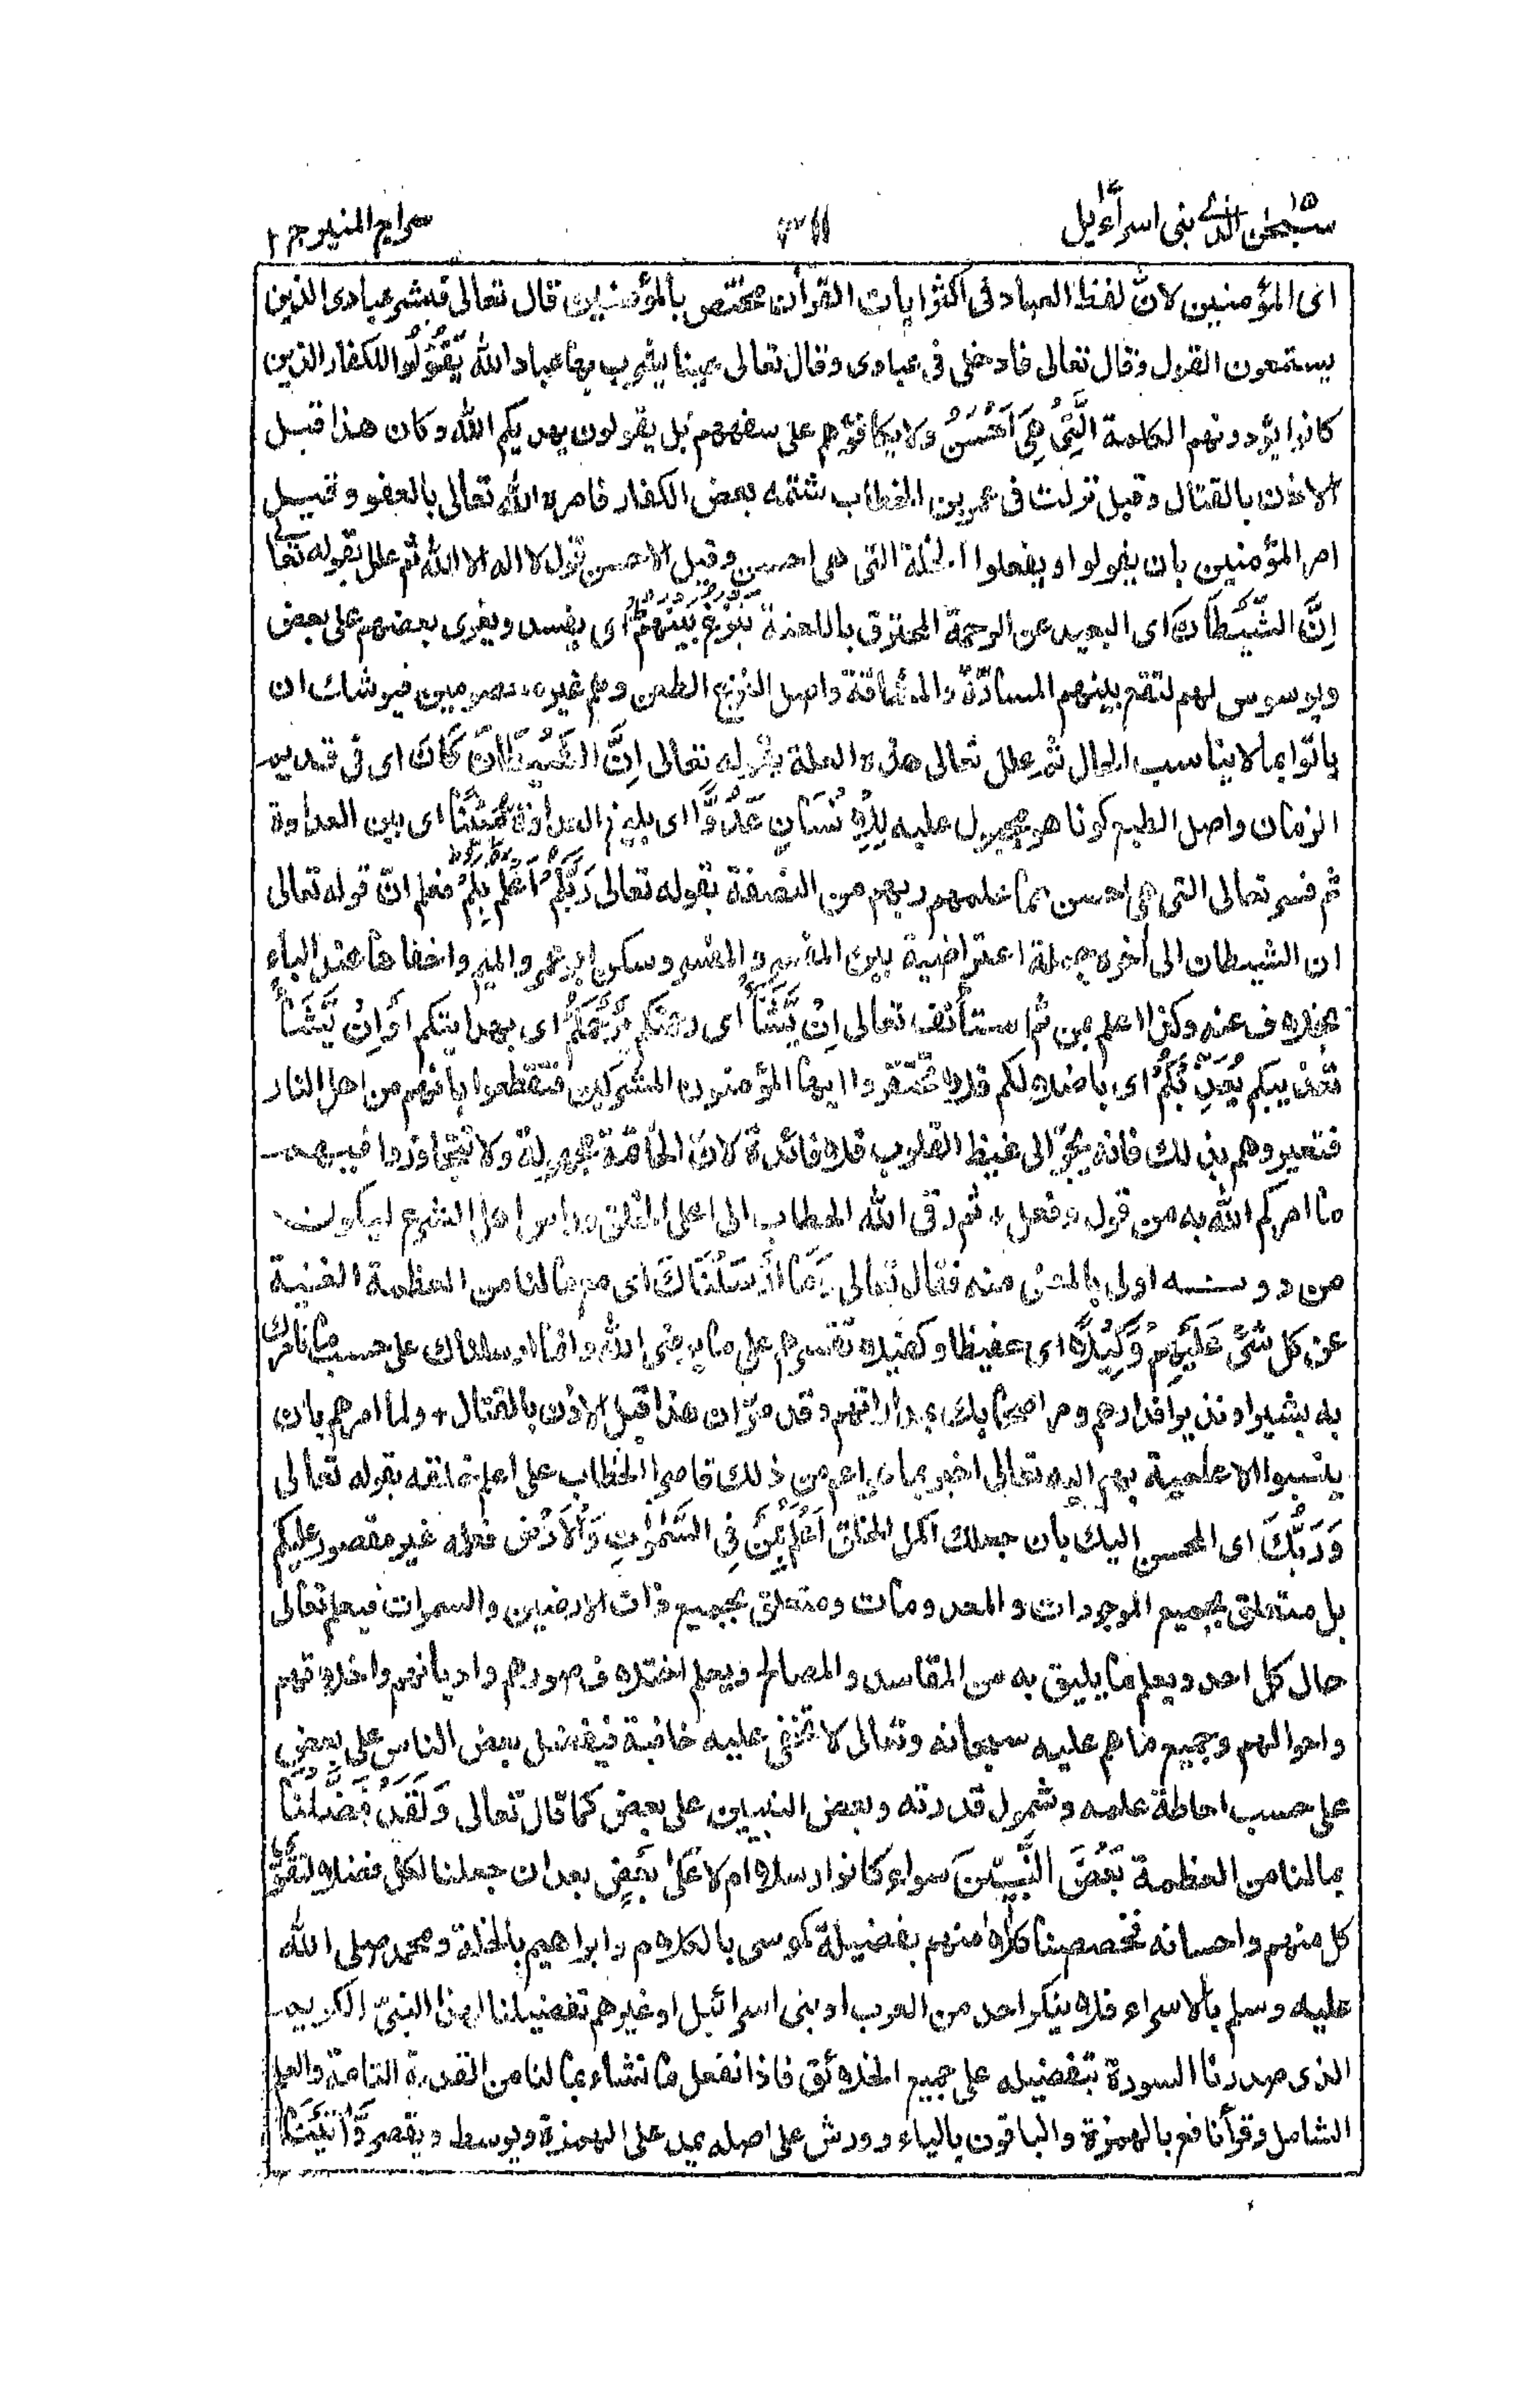 سبحٰن الذے ١٥ بنی اسرآءیل ١٧
٣١١
سراج المنیر ج ٢
ای المؤمنین لانّ لفظ العباد فی اکثر ایات القرآن مختص بالمؤمنین قال تعالی فبشر عبادی الذین
یستمعون القول وقال تعالی فادخلی فی عبادی وقال تعالی عینا یشرب بها عباد الله یَقُوْلُوا للکفار الذین
کانوا یؤذونهم الکلمة الَّتِیْ هِیَ اَحْسَنُ ولا یکافؤهم علی سفههم بل یقولون یهدیکم الله وکان هذا قبل
الاذن بالقتال وقیل نزلت فی عمر بن الخطاب شتمه بعض الکفار فامره الله تعالی بالعفو وقیل
امر المؤمنین بان یقولوا ویفعلوا الخلة التی هی احسن وقیل الاحسن قول لا اله الا الله ثم علل بقوله تعالٰے
اِنَّ الشَّیْطَانَ ای البعید عن الرحمة المحترق باللعنة یَنْزَغُ بَیْنَهُمْ ای یفسد ویغری بعضهم علی بعض
ویوسوس لهم لتقع بینهم المشارّة والمشاقة واصل النزغ الطعن وهم غیر معصومین فیوشك ان
یاتوا بما لا یناسب الحال ثم علل تعالی هذه العلة بقوله تعالی اِنَّ الشَّیْطَانَ کَانَ ای فی قدیم
الزمان واصل الطبع کونا هو مجبول علیه لِلْاِنْسَانِ عَدُوًّا ای بلیغ العداوة مُّبِیْنًا ای بین العداوة
ثم فسر تعالی التی هی احسن بما علمهم ربهم من النصفة بقوله تعالی رَبُّکُمْ اَعْلَمُ بِکُمْ فعلم انّ قوله تعالی
ان الشیطان الی أخره جملة اعتراضیة بین المفسر والمفسر وسکن ابو عمرو المیم واخفاها عند الباء
بخلاف عنه وکذا اعلم بمن ثم استأنف تعالی اِنْ یَّشَأْ ای رحمتکم یَرْحَمْکُمْ ای بهدایتکم اَوْ اِنْ یَّشَأْ
تعذیبکم یُعَذِّبْکُمْ ای باضلالکم فلا تحتقروا ایها المؤمنون المشرکین فتقطعوا بانهم من اهل النار
فتعیروهم بذلك فانه یجرّ الی غیظ القلوب فلا فائدة لان الخاتمة مجهولة ولا تتجاوزوا فیهم
ما امرکم الله به من قول وفعل ٭ ثم رقی الله الخطاب الی اعلی الخلق وراس اهل الشرع لیکون
من دونه اولی بالمعنی منه فقال تعالی وَمَا اَرْسَلْنَاكَ ای مع ما لنا من العظمة الغنیة
عن کل شیٔ عَلَیْهِمْ وَکِیْلًا ای حفیظا وکفیلا تقسرهم علی ما یرضی الله وانما ارسلناك علی حسب ما نامرك
به بشیرا ونذیرا فدارهم ومر اصحابك بمداراتهم وقد مرّ ان هذا قبل الاذن بالقتال ٭ ولما امرهم بان
ینسبوا الاعلمیة بهم الیه تعالی اخبر بما هو اعم من ذلك قاصرا الخطاب علی اعلم خلقه بقوله تعالی
وَرَبُّكَ ای المحسن الیك بان جعلك اکمل الخلق اَعْلَمُ بِمَنْ فِی السَّمٰوٰتِ وَالْاَرْضِ فعلمه غیر مقصور علیکم
بل متعلق بجمیع الموجودات والمعدومات ومتعلق بجمیع ذات الارضین والسموات فیعلم تعالی
حال کل احد ویعلم ما یلیق به من المفاسد والمصالح ویعلم اختلاف صورهم وادیانهم واخلاقهم
واحوالهم وجمیع ما هم علیه سبحانه وتعالی لا تخفی علیه خافیة فیفضل بعض الناس علی بعض
علی حسب احاطة علمه وشمول قدرته وبعض النبیین علی بعض کما قال تعالی وَلَقَدْ فَضَّلْنَا
بما لنا من العظمة بَعْضَ النَّبِیّٖنَ سواء کانوا رسلا ام لا عَلٰی بَعْضٍ بعد ان جعلنا لکل فضلا لتقوی
کل منهم واحسانه فخصصنا کلا منهم بفضیلة کموسی بالکلام وابراهیم بالخلة ومحمد صلی الله
علیه وسلم بالاسراء فلا ینکر احد من العرب او بنی اسرائیل او غیرهم تفضیلنا لهذا النبیّ الکریم
الذی صدرنا السورة بتفضیله علی جمیع الخلائق فاذا نفعل ما نشاء بما لنا من القدرة التامة والعلم
الشامل وقرأ نافع بالهمزة والباقون بالیاء وورش علی اصله یمد علی الهمزة ویوسط ویقصر وَّاٰتَیْنَا